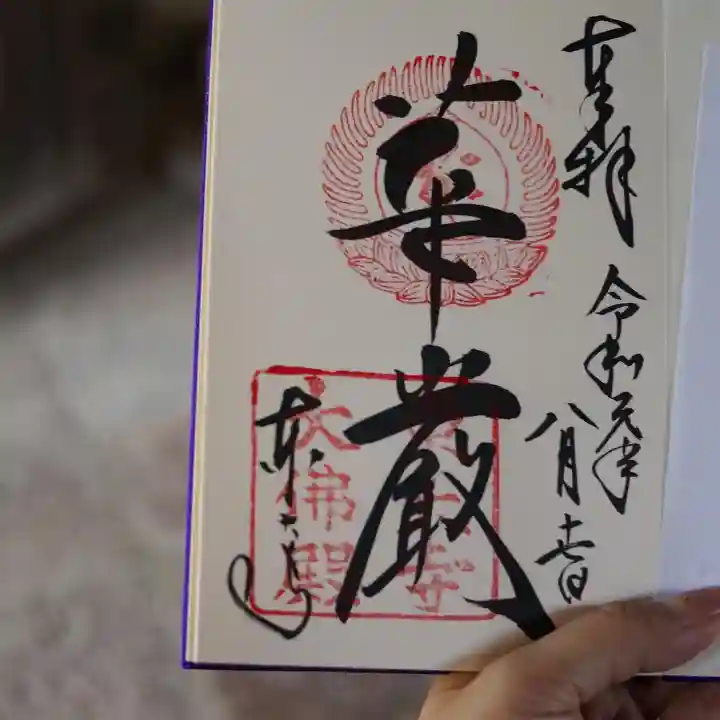 奉拝
令和元年
八月十七日
華厳
東大寺
東大寺
大佛殿